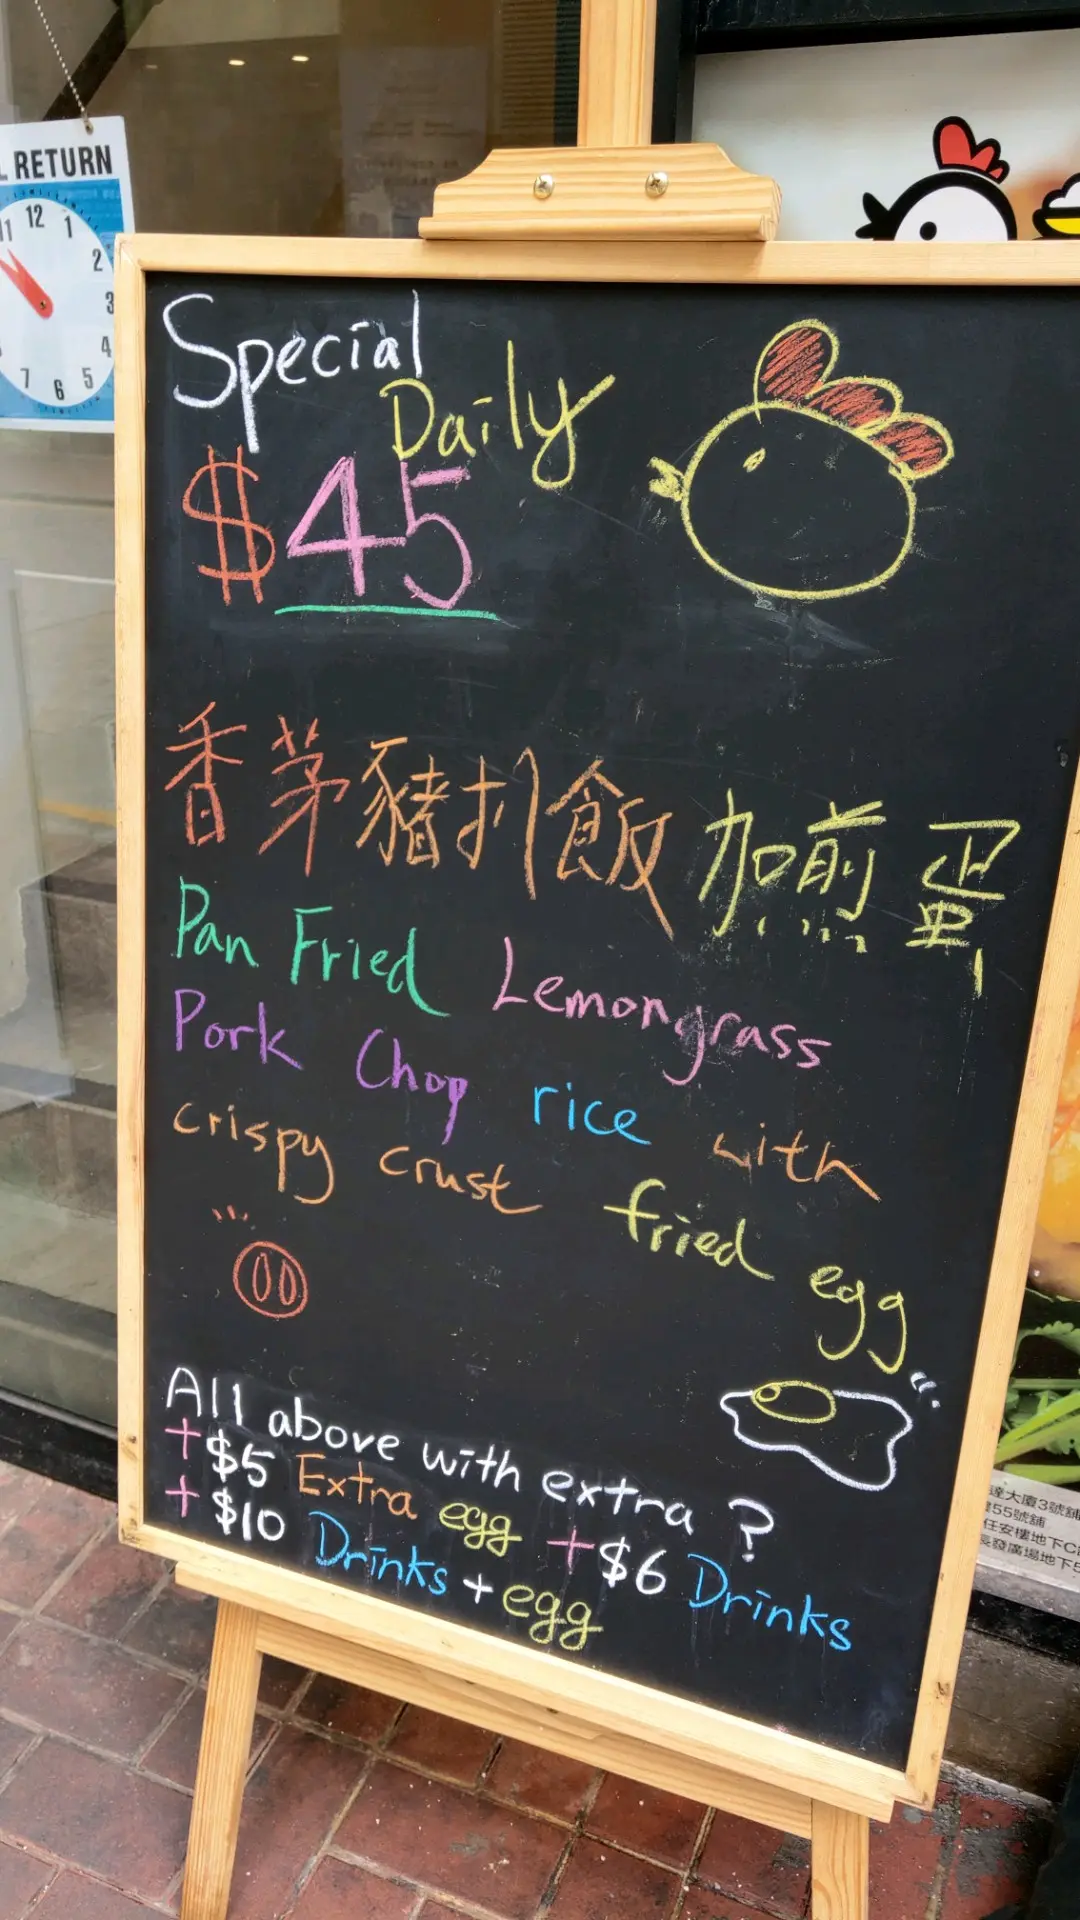 L RETURN
11 12 1
2
3
4
5
6
7
Special
Daily
$45
香茅豬扒飯 加煎蛋
Pan Fried Lemongrass
Pork Chop rice with
crispy crust fried egg
All above with extra ?
+$5 Extra egg +$6 Drinks
+$10 Drinks + egg
達大廈3號舖
55號舖
任安樓地下C
發廣場地下5